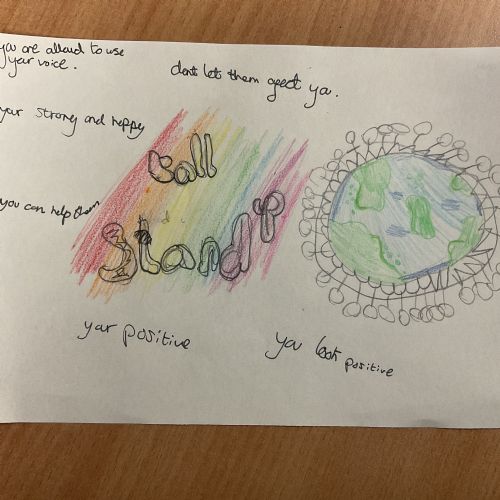 you are allowed to use
your voice.
dont let them affect ya.
your strong and happy
you can help them
Call
Stand
up
your positive
you look positive